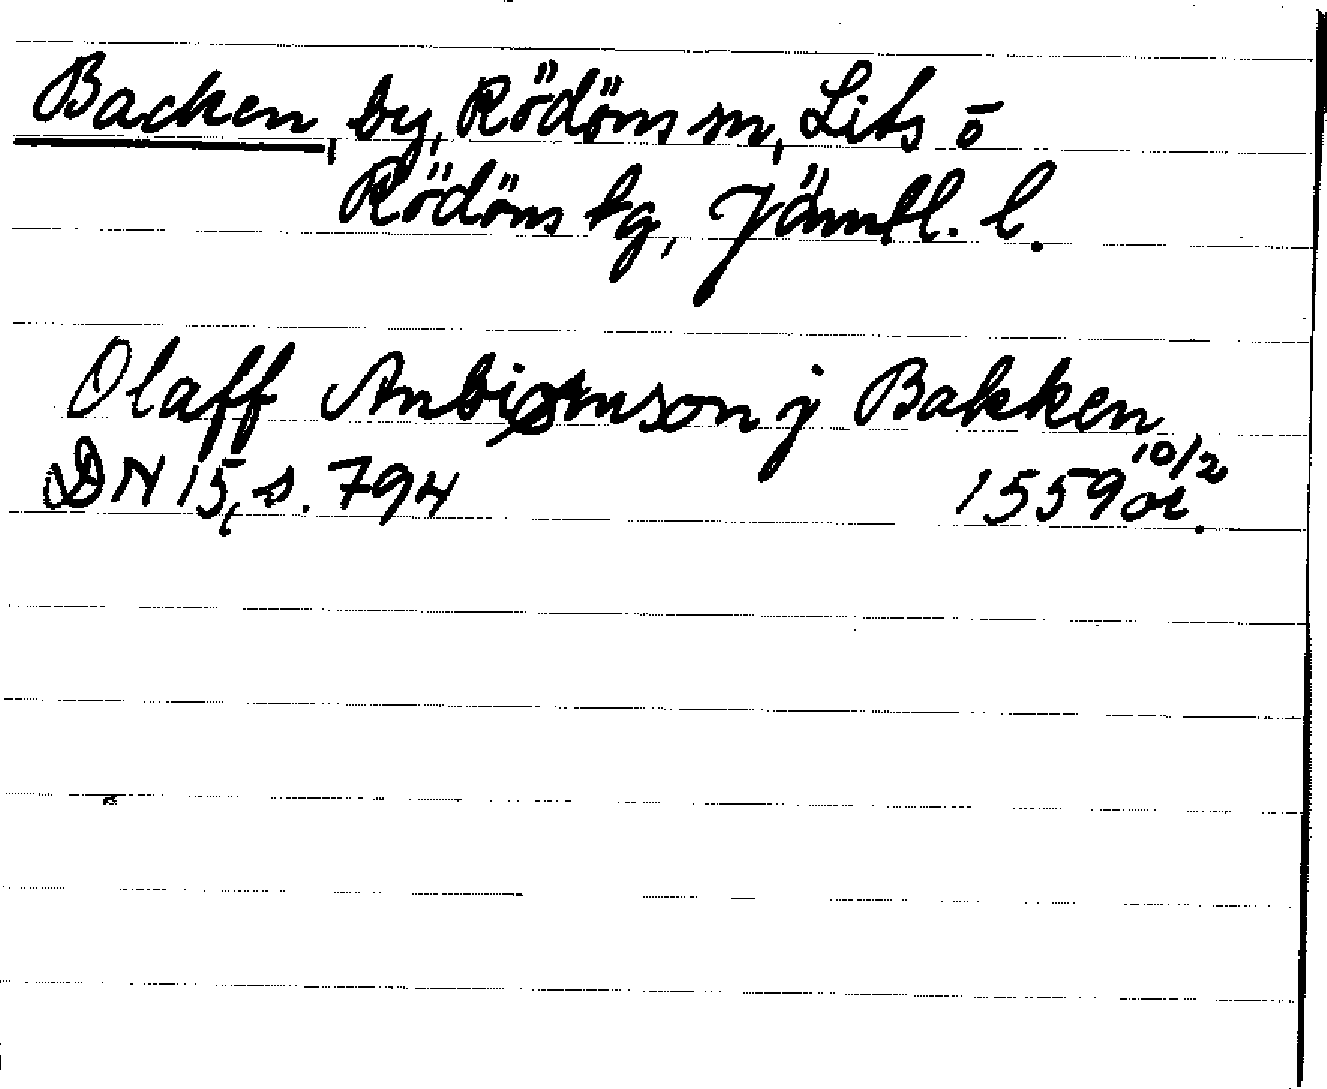 Backen, by, Rödöns sn, Lits o
Rödöns tg, Jämtl. l.
Olaff Anbiørnson j Bakken
DN 15, s. 794 1559 10/2 or.